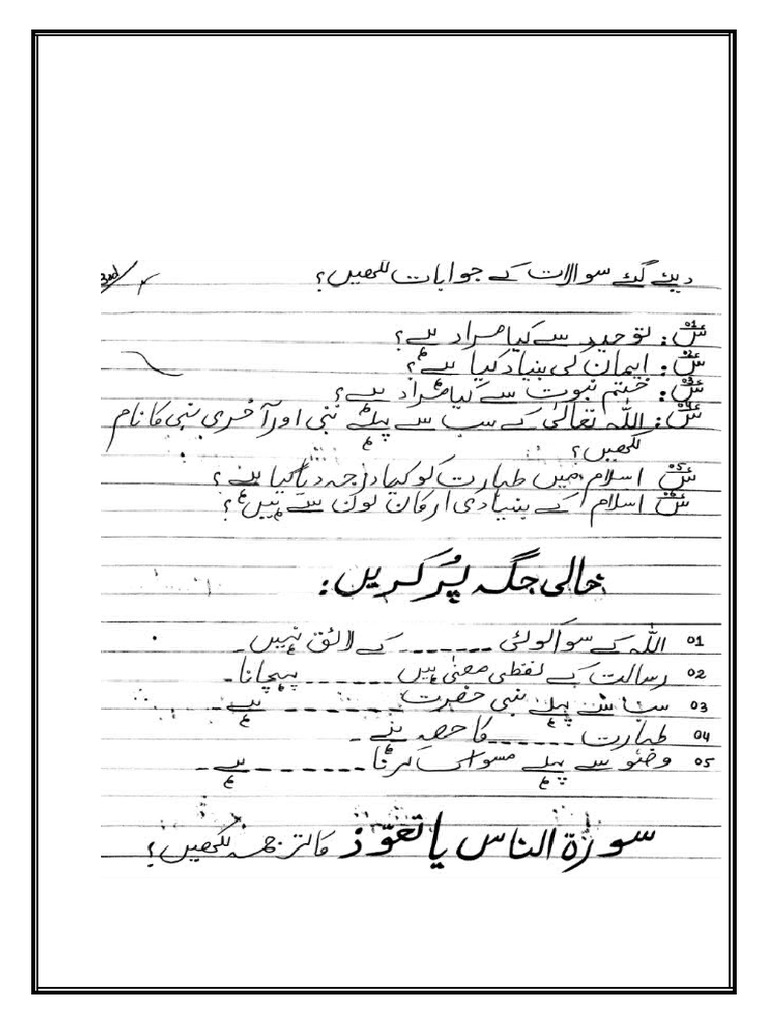 دیئے گئے سوالات کے جوابات لکھیں؟
س01: توحید سے کیا مراد ہے؟
س02: ایمان کی بنیاد کیا ہے؟
س03: ختم نبوت سے کیا مراد ہے؟
س04: اللہ تعالیٰ کے سب سے پہلے نبی اور آخری نبی کا نام
لکھیں؟
س05 اسلام میں طہارت کو کیا درجہ دیا گیا ہے؟
س06 اسلام کے بنیادی ارکان کون سے ہیں؟
خالی جگہ پُر کریں:
01 اللہ کے سوا کوئی ------- کے لائق نہیں۔
02 رسالت کے لفظی معنیٰ ہیں ------- پہچانا۔
03 سب سے پہلے نبی حضرت ------- ہے۔
04 طہارت ------ کا حصہ ہے۔
05 وضو سے پہلے مسواک کرنا ------- ہے۔
سورۃ الناس یا تعوّذ کا ترجمہ لکھیں؟